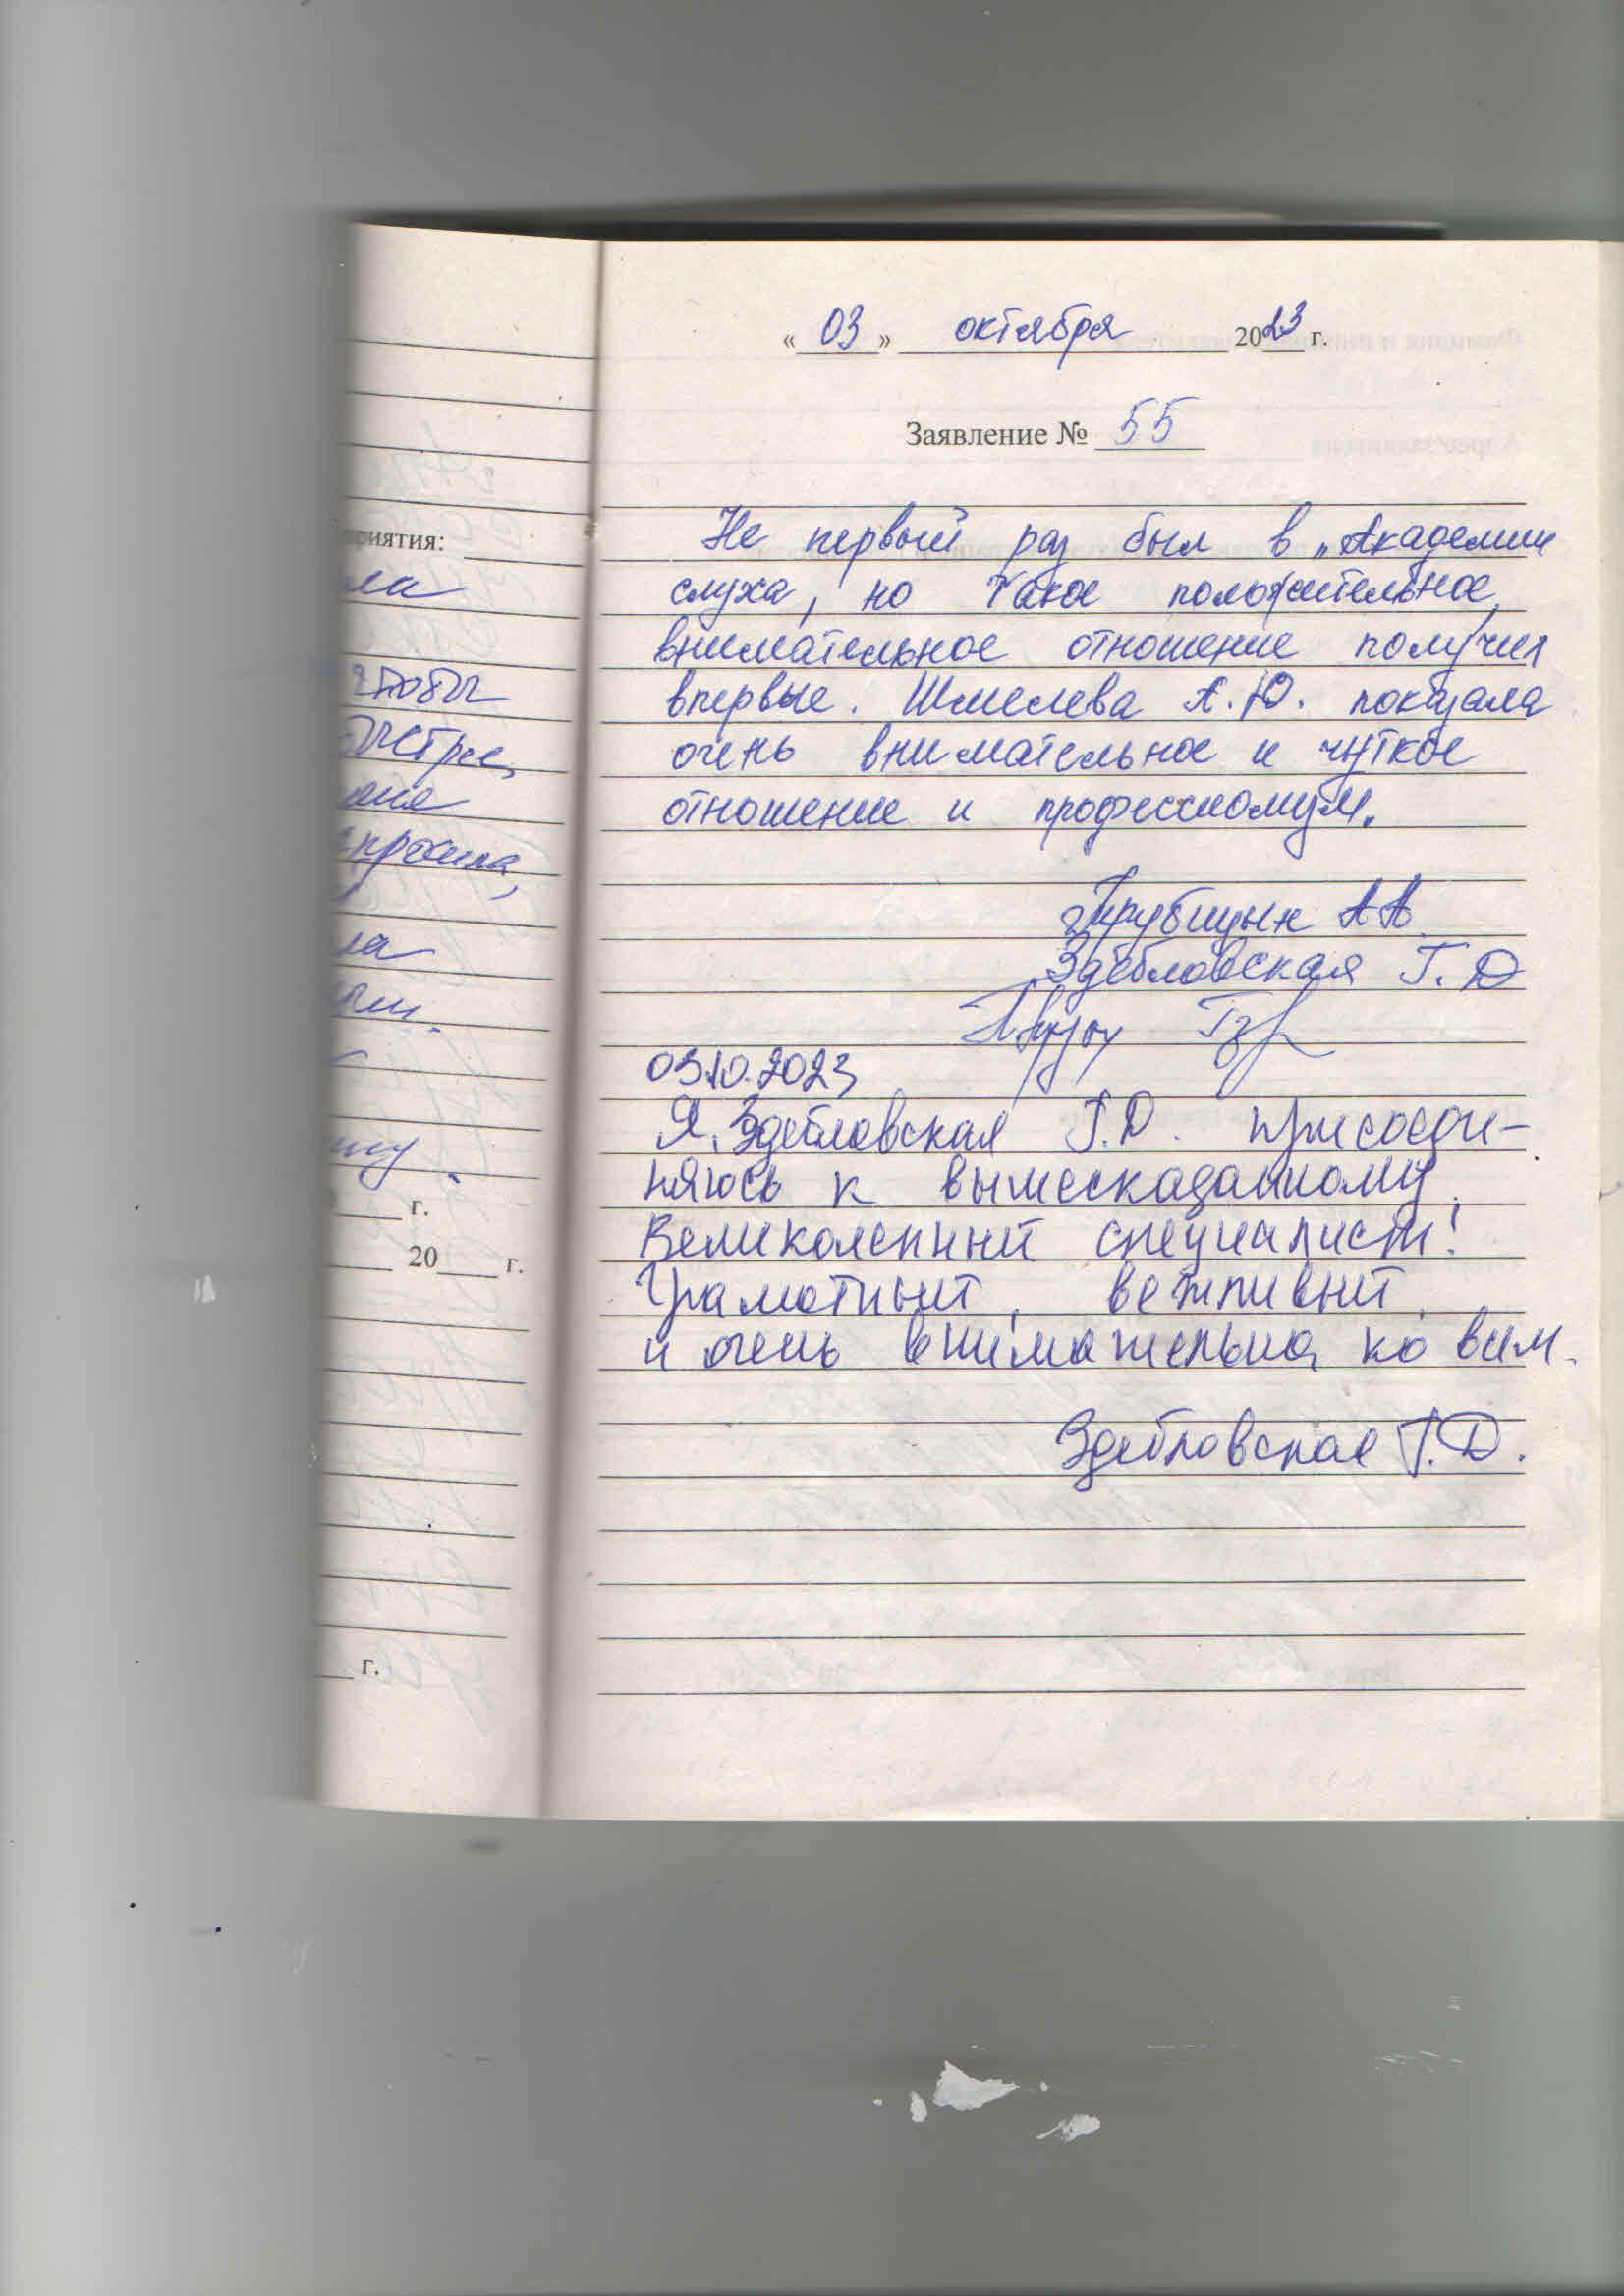 приятия:
ла
чтобы
ыстрее,
спросила,
ла
г.
20 г.
г.
«03» октября 2023 г.
Заявление № 55
Не первый раз был в „Академии
слуха, но такое положительное,
внимательное отношение получил
впервые. Шмелева А.Ю. показала
очень внимательное и чуткое
отношение и профессионизм.
Трубицын А А
Здебловская Г. Д
03.10.2023
Я, Здебловская Г.Д. присоеди-
няюсь к вышесказанному.
Великолепный специалист!
Грамотный, вежливый,
и очень внимательна ко всем.
Здебловская Г.Д.